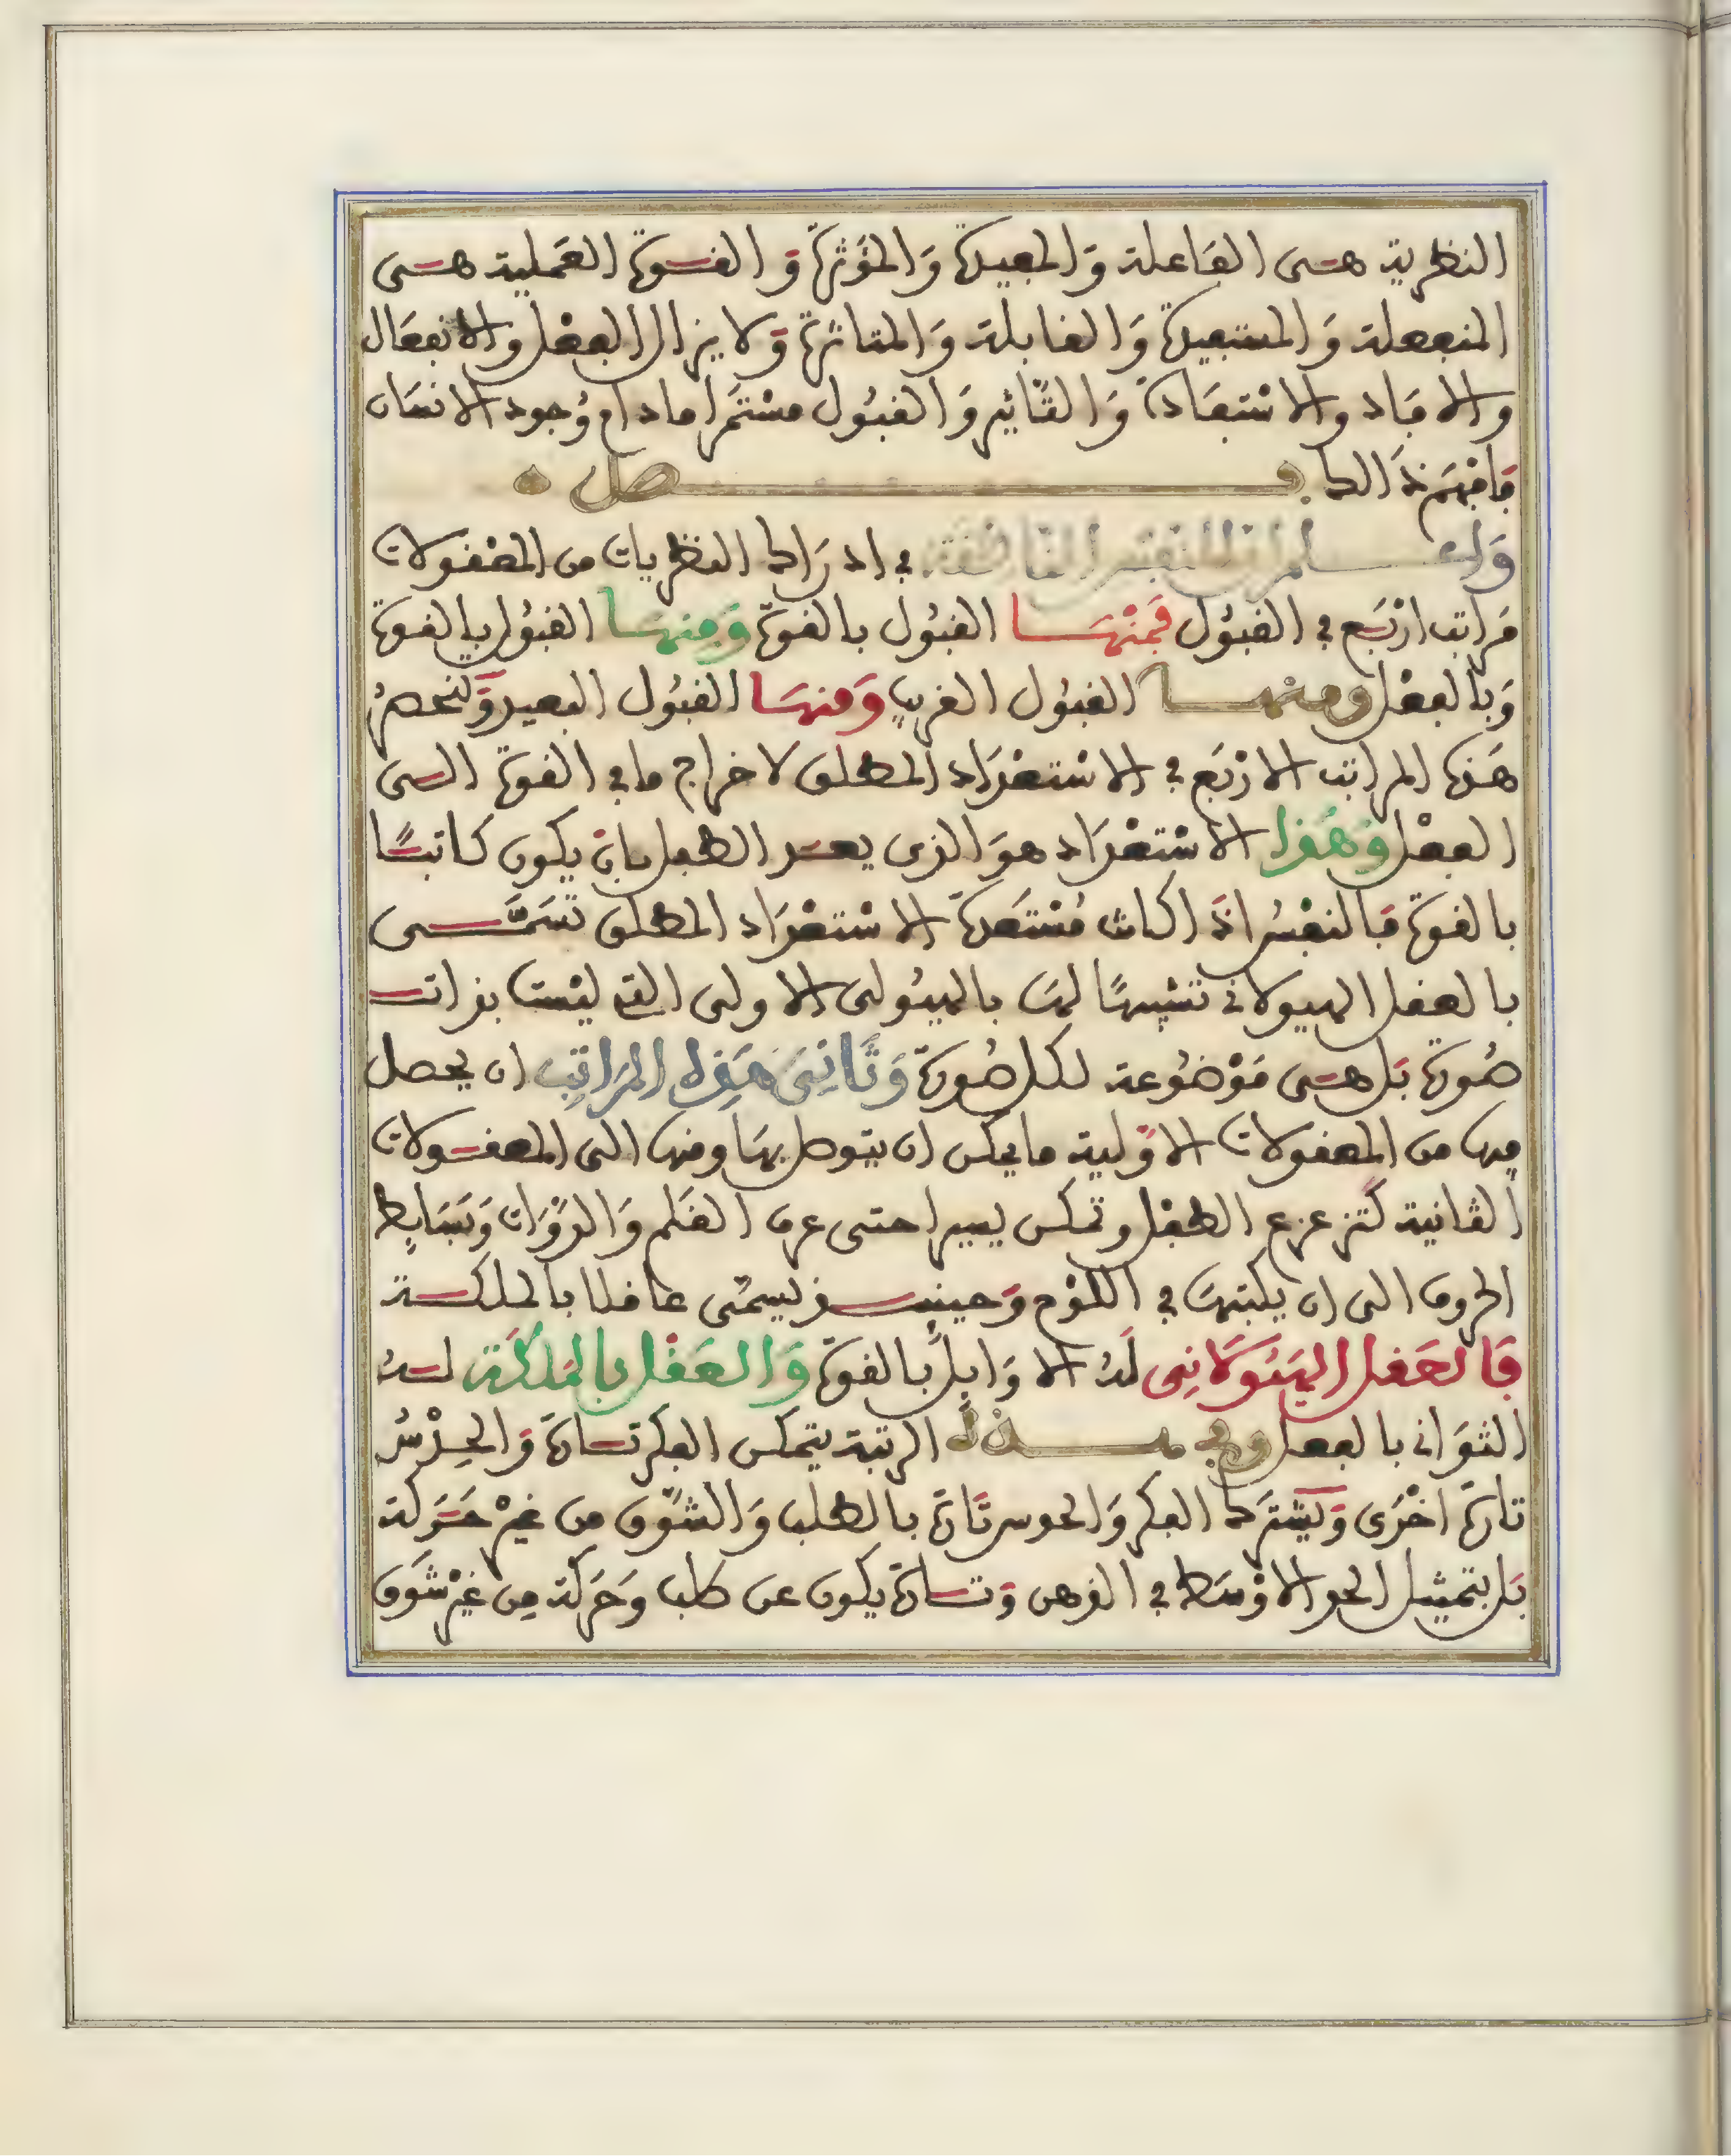 النظرية هى الفاعلة وَالمفيدة وَالمؤَثرة وَالقوة العَملية هى
المنفعلة وَالمستفيدة وَالقابلة وَالمتاثرة وَلا يزال الفعْل والانفعَال
والافاد والاسْتفَادة وَالتَّاثير وَالقبُول مسْتمَرا مادام وُجود الانسَان
فَافهَم ذَالك فصل
وَاعلم ان للنفس الناطقة في ادرَاك النظريات من المعْقولات
مَراتب ارْبَع في القبُول فَمنْهَا القبُول بالقوة وَمنهَا القبُول بالقوة
وَبالفعْل ومنها القبُول القريب وَمنهَا القبُول البعيد وَتنحصرُ
هَذه المراتب الارْبَع في الاسْتعْدَاد المطلق لاخراج ما في القوة الى
الفعْل وَهَذا الاسْتعْدَاد هوَ الذى يعد الطفل بان يكون كاتبًا
بالقوة فَالنفسُ اذَا كانت مُسْتَعدة الاسْتعْدَاد المطلق تسَمَّى
بالعقل الهيولانى تشبيهًا لهَا بالهيُولى الاولى التى ليْست بذات
صُورة بَل هى مَوْضُوعة لكل صُورة وَثَانِىَ هَذِه المرَاتِبِ ان يحصل
فيها من المعقولات الاوَّلية ما يمكن ان يتوصل بهَا ومنها الى المعقولات
الثانية كتزعزع الطفْل وتمكن يسيرا حتى عرف القَلم وَالدوَّات وَبَسَايط
الحروف الى ان يكتبهَا في اللوْح وَحينئذ يسمَّى عاقلا بالملكة
فَالعَقل الهَيُوَلانِى لَهُ الاوَايل بالقوة وَالعَقْل بالمَلكَة لهُ
الثوَانى بالفعل وفي هذه الرتبة يتمكن الفكر تارَة وَالحِدْسُ
تارة اخْرَى وَيشتَرك الفكر وَالحدس تَارة بالطلب وَالشَّوق من غيْر حَرَكة
بَل بتمثيل الحد الاوْسَط في الذهن وَتارة يكون عن طلب وَحَركة مِن غيْر شَوق